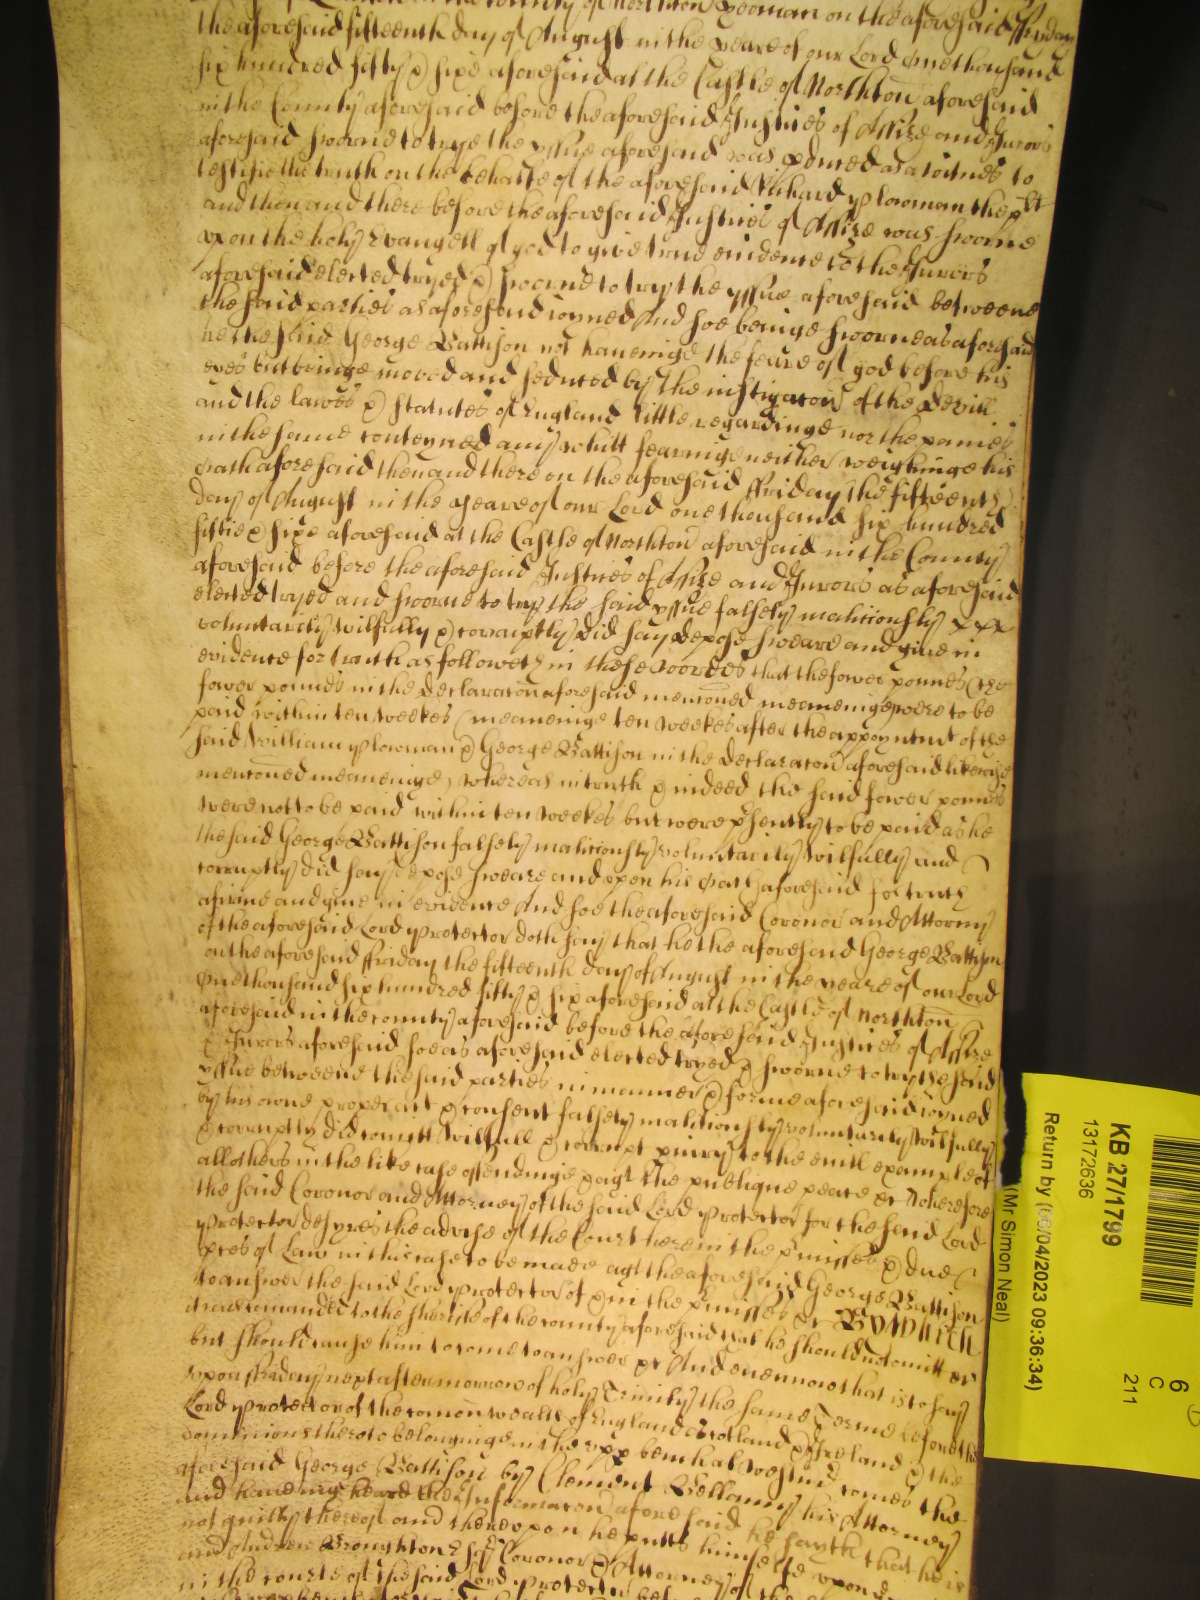 in the County of Northton yeoman on the aforesaid ffryday
the aforesaid fifteenth day of August in the yeare of our Lord One thousand
six hundred fifty & sixe aforesaid at the Castle of Northton aforesaid
in the County aforesaid before the aforesaid Justices of Assize and Jurors
aforesaid sworne to trye the yssue aforesaid was pduced as a witnes to
testifie the truth on the behalfe of the aforesaid Richard Plowman the plt
and then and there before the aforesaid Justices of Assize was sworne
upon the holy Evangell of god to give true evidence to the Jurors
aforesaid elected tryed & sworne to try the yssue aforesaid betweene
the said parties as aforesaid ioyned And soe beinge sworne as aforesaid
he the said George Battison not haveinge the feare of god before his
eyes but beinge moved and seduced by the instigacon of the Devill
and the lawes & statutes of England little regardinge nor the paines
in the same conteyned any whitt fearinge neither weighinge his
oath aforesaid then and there on the aforesaid ffriday the fifteenth
day of August in the yeare of our Lord one thousand six hundred
fiftie & sixe aforesaid at the Castle of Northton aforesaid in the County
aforesaid before the aforesaid Justices of Assize and Jurors as aforesaid
elected tryed and sworne to try the said yssue falsely malitiously xxx
voluntarily wilfully & corruptly did say depose sweare and give in
evidence for truth as followeth in these woordes that the fower pounds (the
fower pounds in the declaracon aforesaid menconed meaneinge) were to be
paid within ten weekes (meaneinge ten weekes after the appoyntmt of the
said William Plowman & George Battison in the declaracon aforesaid likewise
menconed meaneinge) whereas in truth & indeed the said fower pounds
were not to be paid within ten weekes but were psently to be paid as he
the said George Battison falsely malitiously voluntarily wilfully and
corruptly did say depose sweare and upon his oath aforesaid for truth
afirme and give in evidence And soe the aforesaid Coronor and Attorny
of the aforesaid Lord Protector doth say that he the aforesaid George Battison
on the aforesaid ffriday the fifteenth day of August in the yeare of our Lord
One thousand six hundred fifty & six aforesaid at the Castle of Northton
aforesaid in the county aforesaid before the aforesaid Justices of Assize
& Jurors aforesaid soe as aforesaid elected tryed & sworne to try the said
yssue betweene the said parties in manner & forme aforesaid ioyned
by his owne proper act & consent falsely malitiously voluntarily wilfully
& corruptly did comitt wilfull & corrupt piury to the evill example of
all others in the like case offendinge & agt the publique peace &c Wherefore
the said Coronor and Attorney of the said Lord Protector for the said Lord
Protector desyres the advise of the Court here in the pmisses & due
pces of Law in this case to be made agt the aforesaid George Battison
to answer the said Lord Protector of & in the pmisses &c By which
it was comanded to the Sherife of the county aforesaid that he should not omitt &c
but should cause him to come to answer &c And even now that is to say
upon ffryday next after morrow of holy Trinity the same Terme before the
Lord Protector of the comon wealth of England Scotland & Ireland & the
dominions thereto belonginge in the upp bench at Westmr comes the
aforesaid George Battison by Clement Bellamy his Attorney
and haveinge heard the Informacon aforesaid he sayth that he is
not guilty thereof and thereupon he putts himselfe upon
and Andrew Broughton Esq Coronor & Attorney of the
in the courte of the said Lord Protector
KB 27/1799
13172636
Return by (06/04/2023 09:36:34)
(Mr Simon Neal)
6
C
211